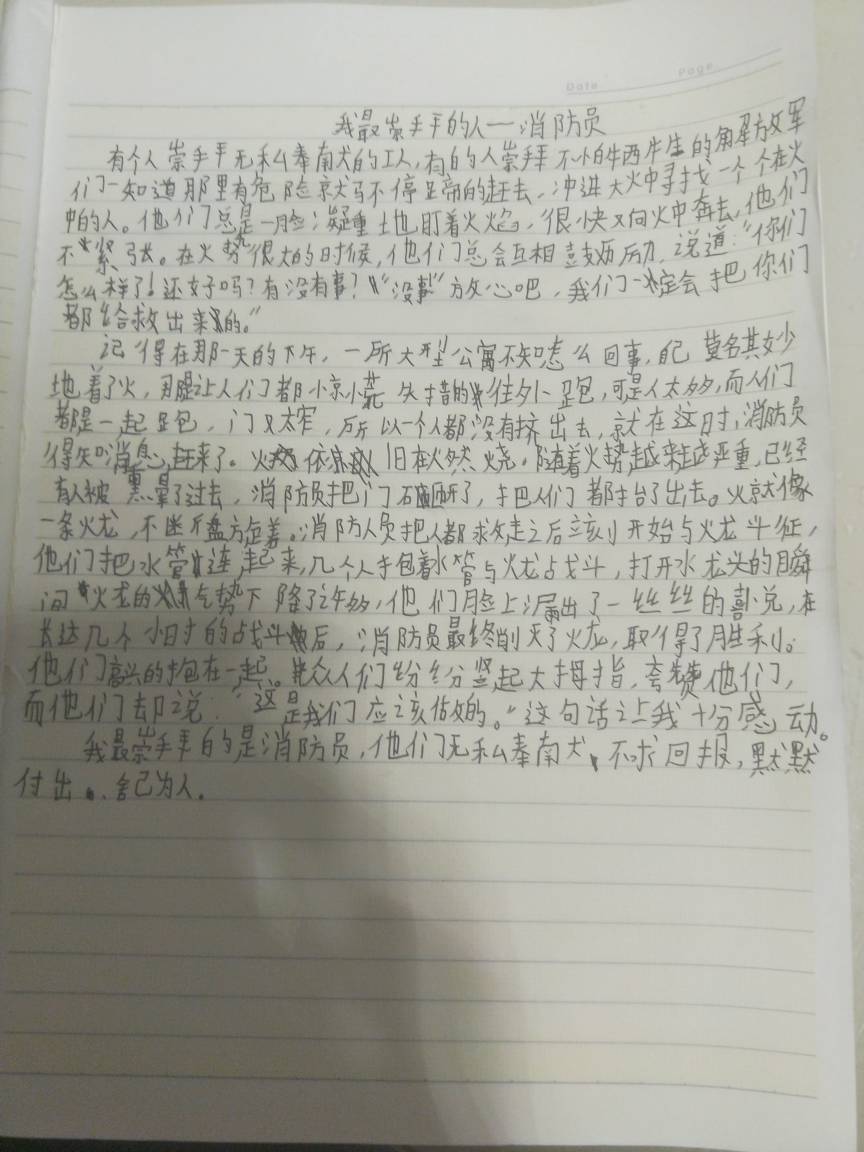 Date Page
我最崇拜的人一消防员
有个人崇拜无私奉献的工人,有的人崇拜不怕牺牲的解放军
们一知道那里有危险就马不停蹄的赶去,冲进大火中寻找一个个在火
中的人。他们总是一脸凝重地盯着火焰,很快又向火中奔去,他们
不紧张。在火势很大的时候,他们总会互相鼓励,说道:“你们
怎么样了!还好吗?有没有事?”“没事”放心吧,我们一定会把你们
都给救出来的。”
记得在那一天的下午,一所大型公寓不知怎么回事,自己莫名其妙
地着了火,让人们都惊慌失措的往外跑,可是人太多,而人们
都是一起跑,门又太窄,所以一个人都没有挤出去,就在这时,消防员
得知消息,赶来了。火依旧在燃烧。随着火势越来越严重,已经
有人被熏晕了过去,消防员把门砸开了,把人们都抬了出去。火就像
一条火龙,不断盘旋着。消防人员把人都救走之后立刻开始与火龙斗征,
他们把水管连起来,几个人抱着水管与火龙战斗,打开水龙头的瞬
间火龙的气势下降了许多,他们脸上漏出了一丝丝的喜悦,在
长达几个小时的战斗后,消防员最终消灭了火龙,取得了胜利。
他们高兴的抱在一起。众人们纷纷竖起大拇指,夸赞他们,
而他们却说:“这是我们应该做的。”这句话让我十分感动。
我最崇拜的是消防员,他们无私奉献、不求回报,默默
付出、舍己为人。